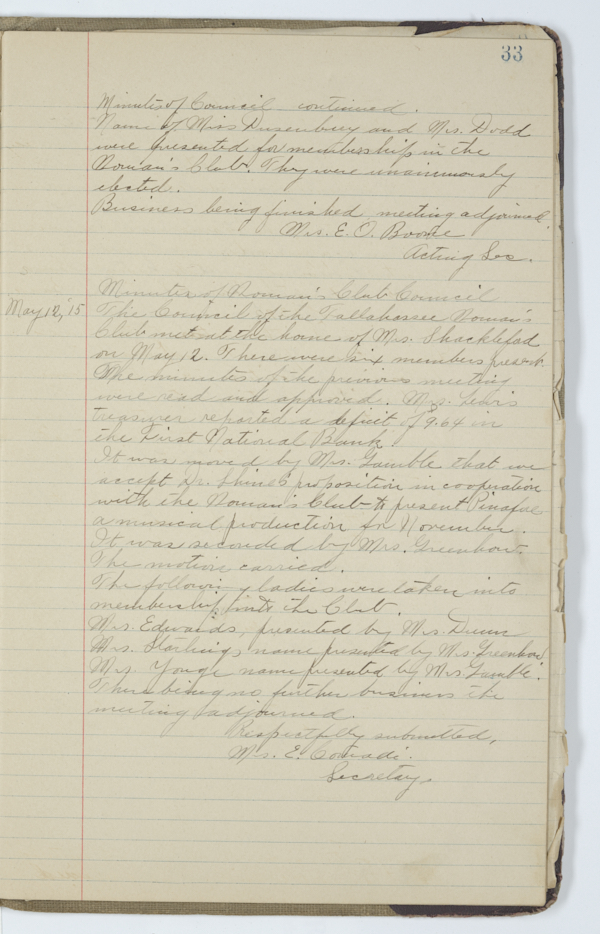 33
Minutes of Council continued.
Name of Miss Dusenbury and Mrs. Dodd
were presented for membership in the
Woman's Club. They were unanimously
elected.
Business being finished meeting adjourned.
Mrs. E. O. Boone
Acting Sec.
Minutes of Woman's Club Council
May 12, '15 The Council of the Tallahassee Woman's
Club met at the home of Mrs. Shacklefad
on May 12. There were six members present.
The minutes of the previous meeting
were read and approved. Mrs. Lewis
treasurer reported a deficit of $9.64 in
the First National Bank.
It was moved by Mrs. Gamble that we
accept Dr. Shine's proposition in cooperation
with the Woman's Club to present Pinafore
a musical production for November.
It was seconded by Mrs. Greenhow.
The motion carried.
The following ladies were taken into
membership into the Club.
Mrs. Edwards, presented by Mrs.
Mrs. Starlings name presented by Mrs. Greenhow
Mrs. Yonge name presented by Mrs. Gamble.
There being no further business the
meeting adjourned.
Respectfully submitted,
Mrs. E. Conradi.
Secretary.